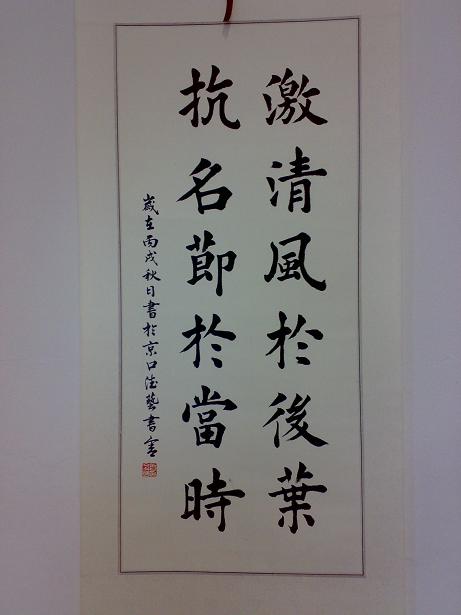 激清風於後葉
抗名節於當時
歲在丙戌秋日書於京口德藝書舍